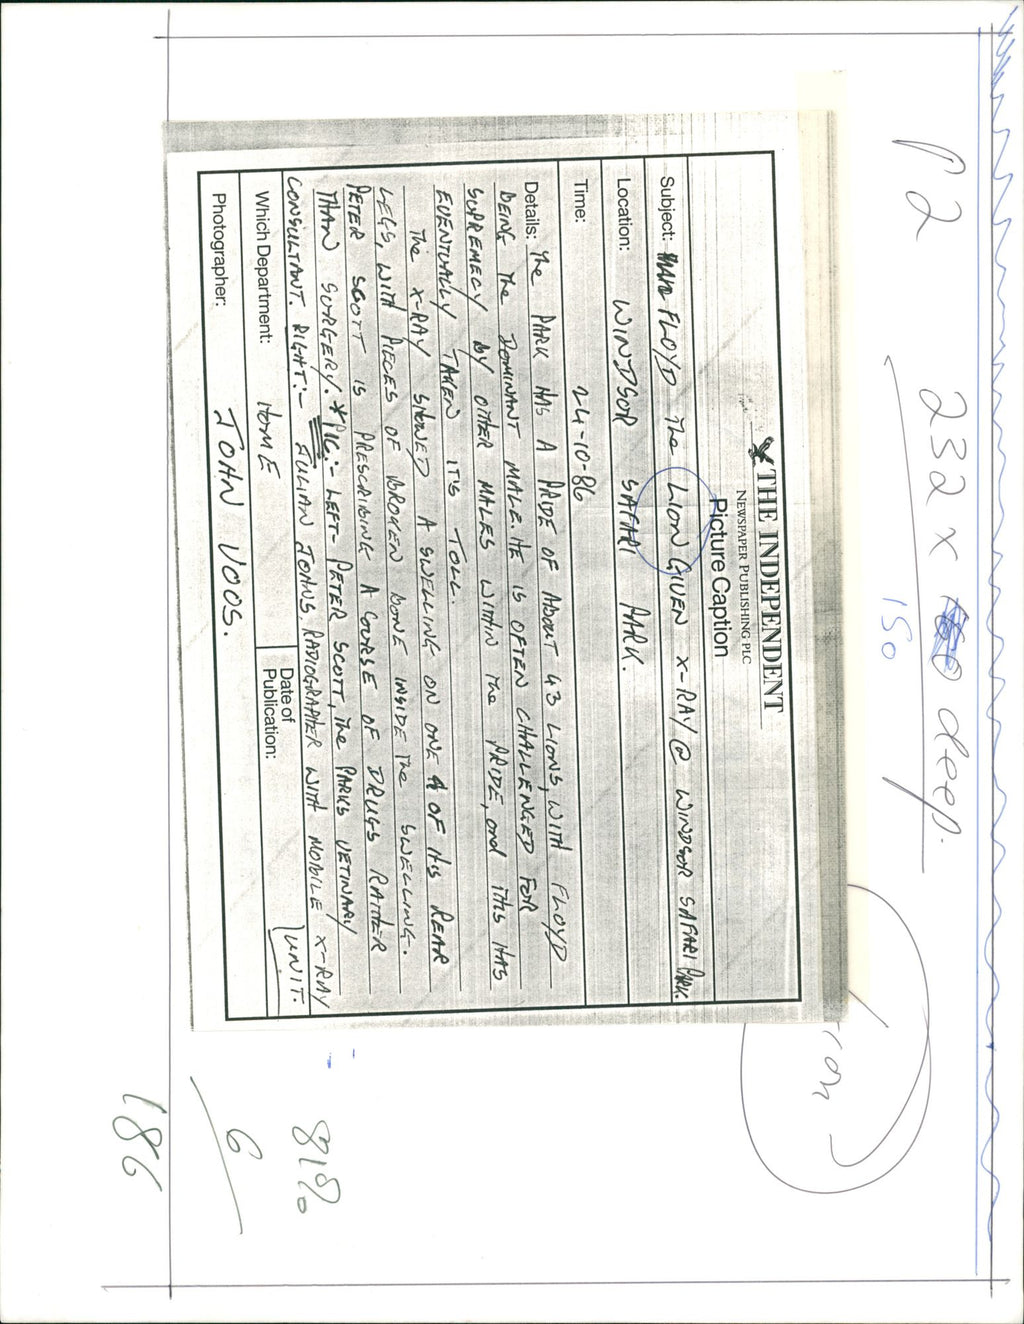 P2 232 x deep.
150
THE INDEPENDENT
NEWSPAPER PUBLISHING PLC
Picture Caption
Subject: FLOYD The LION GIVEN X-RAY @ WINDSOR SAFARI PARK.
Location: WINDSOR SAFARI PARK.
Time: 24-10-86
Details: The PARK HAS A PRIDE OF ABOUT 43 LIONS, WITH FLOYD
BEING The DOMINANT MALE. HE IS OFTEN CHALLENGED FOR
SUPREMECY BY OTHER MALES WITHIN The PRIDE, and THIS HAS
EVENTUALLY TAKEN IT'S TOLL.
The X-RAY SHOWED A SWELLING ON ONE OF HIS REAR
LEGS, WITH PIECES OF BROKEN BONE INSIDE The SWELLING.
PETER SCOTT IS PRESCRIBING A COURSE OF DRUGS RATHER
THAN SURGERY. *PIC:- LEFT- PETER SCOTT, The PARKS VETINARY
CONSULTANT. RIGHT:- JULIAN JOHNS, RADIOGRAPHER WITH MOBILE X-RAY
UNIT.
Which Department: HOME
Date of
Publication:
Photographer: JOHN VOOS.
81%
6
186